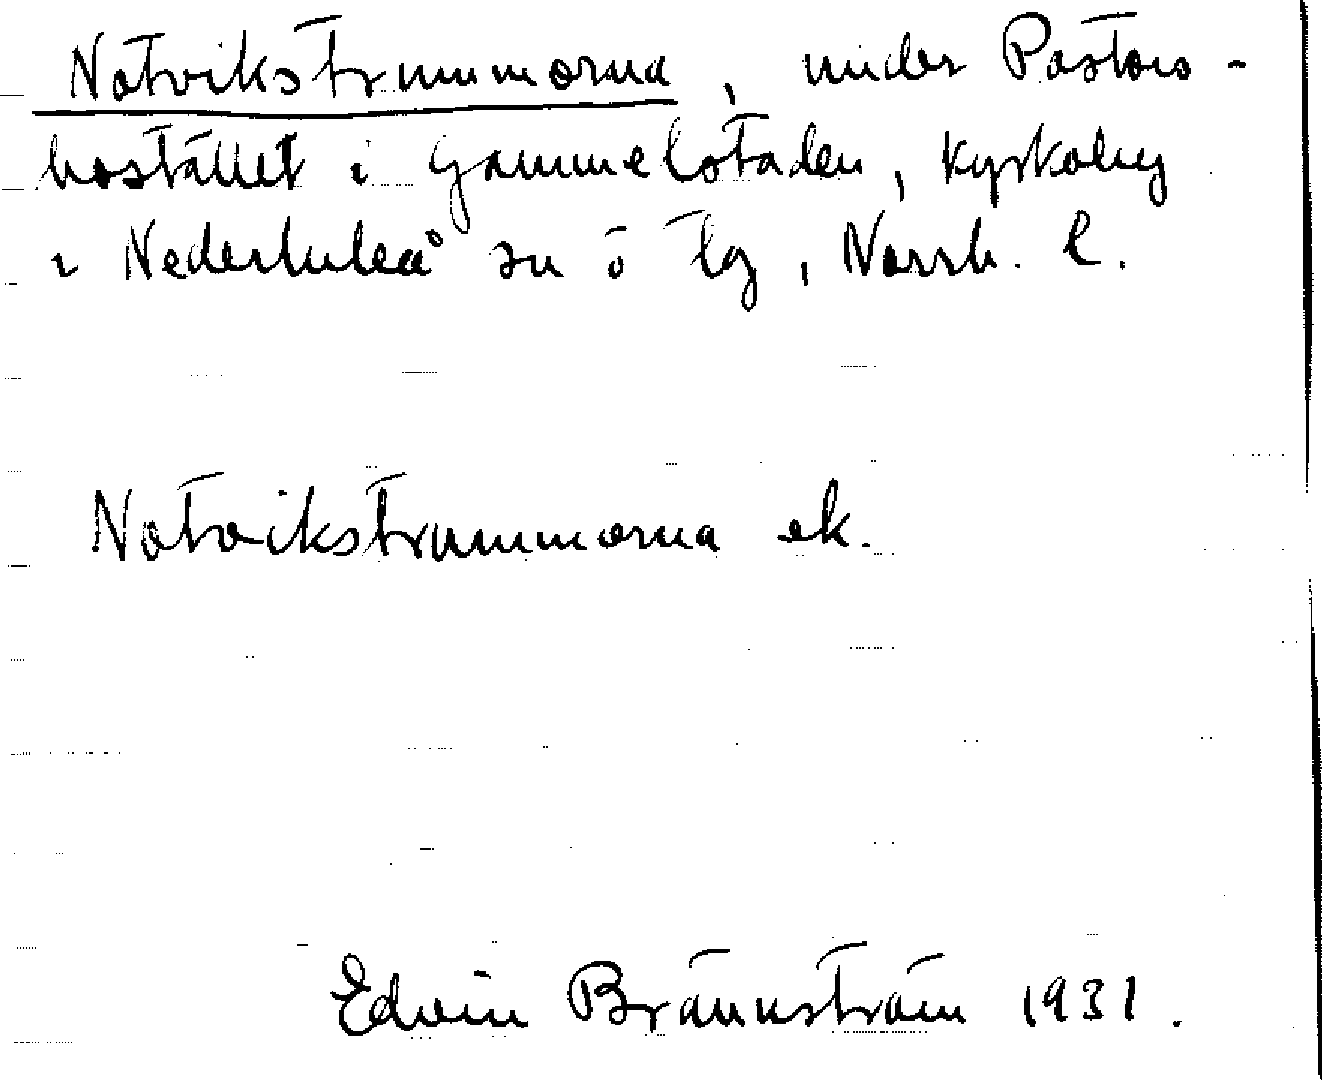 Notvikstrummorna, under Pastors-
bostället i Gammelstaden, kyrkoby
i Nederluleå sn ö tg, Norrb. l.
Notvikstrummorna ek.
Edvin Brännström 1931.